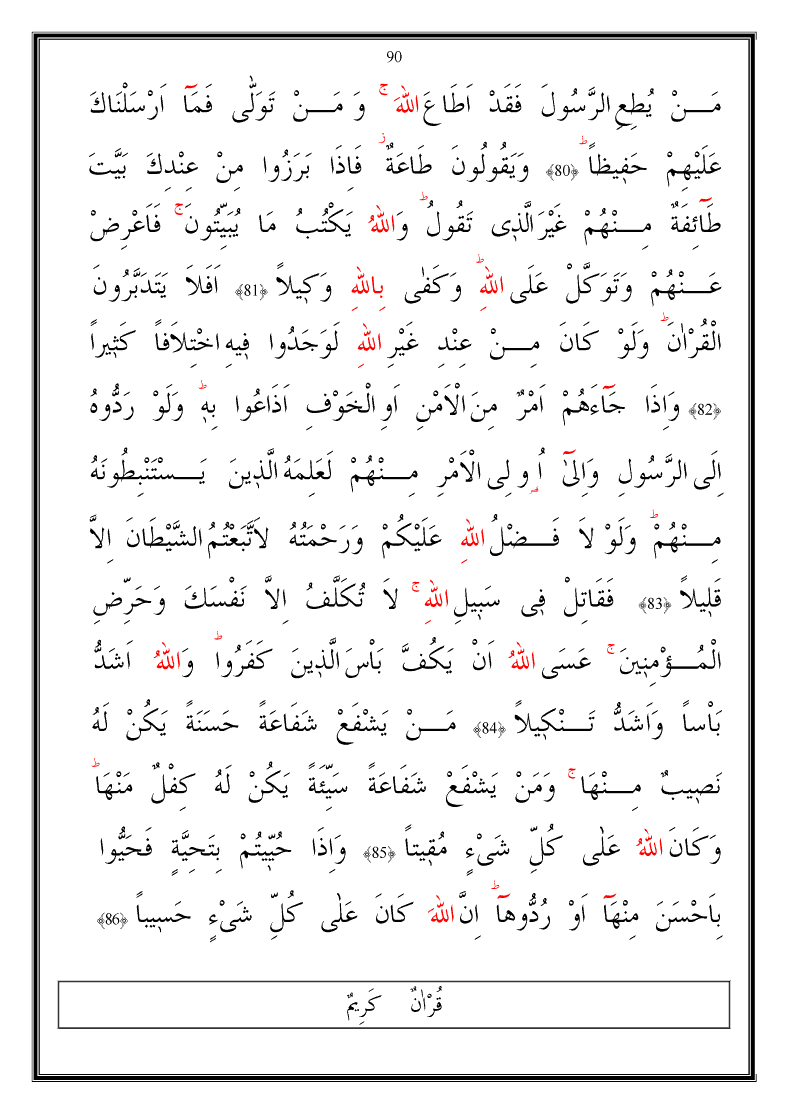 90
مَـــنْ يُطِعِ الرَّسُولَ فَقَدْ اَطَاعَ اللّٰهَ ۚ وَ مَـــنْ تَوَلّٰى فَمَٓا اَرْسَلْنَاكَ
عَلَيْهِمْ حَف۪يظاً ۜ ﴿80﴾ وَيَقُولُونَ طَاعَةٌ ۘ فَاِذَا بَرَزُوا مِنْ عِنْدِكَ بَيَّتَ
طَٓائِفَةٌ مِـــنْهُمْ غَيْرَ الَّذ۪ى تَقُولُ ۜ وَاللّٰهُ يَكْتُبُ مَا يُبَيِّتُونَ ۚ فَاَعْرِضْ
عَـــنْهُمْ وَتَوَكَّلْ عَلَى اللّٰهِ ۜ وَكَفٰى بِاللّٰهِ وَك۪يلاً ﴿81﴾ اَفَلاَ يَتَدَبَّرُونَ
الْقُرْاٰنَ ۜ وَلَوْ كَانَ مِـــنْ عِنْدِ غَيْرِ اللّٰهِ لَوَجَدُوا ف۪يهِ اخْتِلاَفاً كَث۪يراً
﴿82﴾ وَاِذَا جَٓاءَهُمْ اَمْرٌ مِنَ الْاَمْنِ اَوِ الْخَوْفِ اَذَاعُوا بِه۪ ۜ وَلَوْ رَدُّوهُ
اِلَى الرَّسُولِ وَاِلٰٓى اُو۬لِى الْاَمْرِ مِـــنْهُمْ لَعَلِمَهُ الَّذ۪ينَ يَـــسْتَنْبِطُونَهُ
مِـــنْهُمْ ۜ وَلَوْ لاَ فَـــضْلُ اللّٰهِ عَلَيْكُمْ وَرَحْمَتُهُ لاَتَّبَعْتُمُ الشَّيْطَانَ اِلاَّ
قَل۪يلاً ﴿83﴾ فَقَاتِلْ ف۪ى سَب۪يلِ اللّٰهِ ۚ لاَ تُكَلَّفُ اِلاَّ نَفْسَكَ وَحَرِّضِ
الْمُـــؤْمِن۪ينَ ۚ عَسَى اللّٰهُ اَنْ يَكُفَّ بَاْسَ الَّذ۪ينَ كَفَرُوا ۜ وَاللّٰهُ اَشَدُّ
بَاْساً وَاَشَدُّ تَـــنْك۪يلاً ﴿84﴾ مَـــنْ يَشْفَعْ شَفَاعَةً حَسَنَةً يَكُنْ لَهُ
نَص۪يبٌ مِـــنْهَا ۚ وَمَنْ يَشْفَعْ شَفَاعَةً سَيِّئَةً يَكُنْ لَهُ كِفْلٌ مَنْهَا ۜ
وَكَانَ اللّٰهُ عَلٰى كُلِّ شَىْءٍ مُق۪يتاً ﴿85﴾ وَاِذَا حُيّ۪يتُمْ بِتَحِيَّةٍ فَحَيُّوا
بِاَحْسَنَ مِنْهَٓا اَوْ رُدُّوهَٓا ۜ اِنَّ اللّٰهَ كَانَ عَلٰى كُلِّ شَىْءٍ حَس۪يباً ﴿86﴾
قُرْاٰنٌ كَرِيمٌ